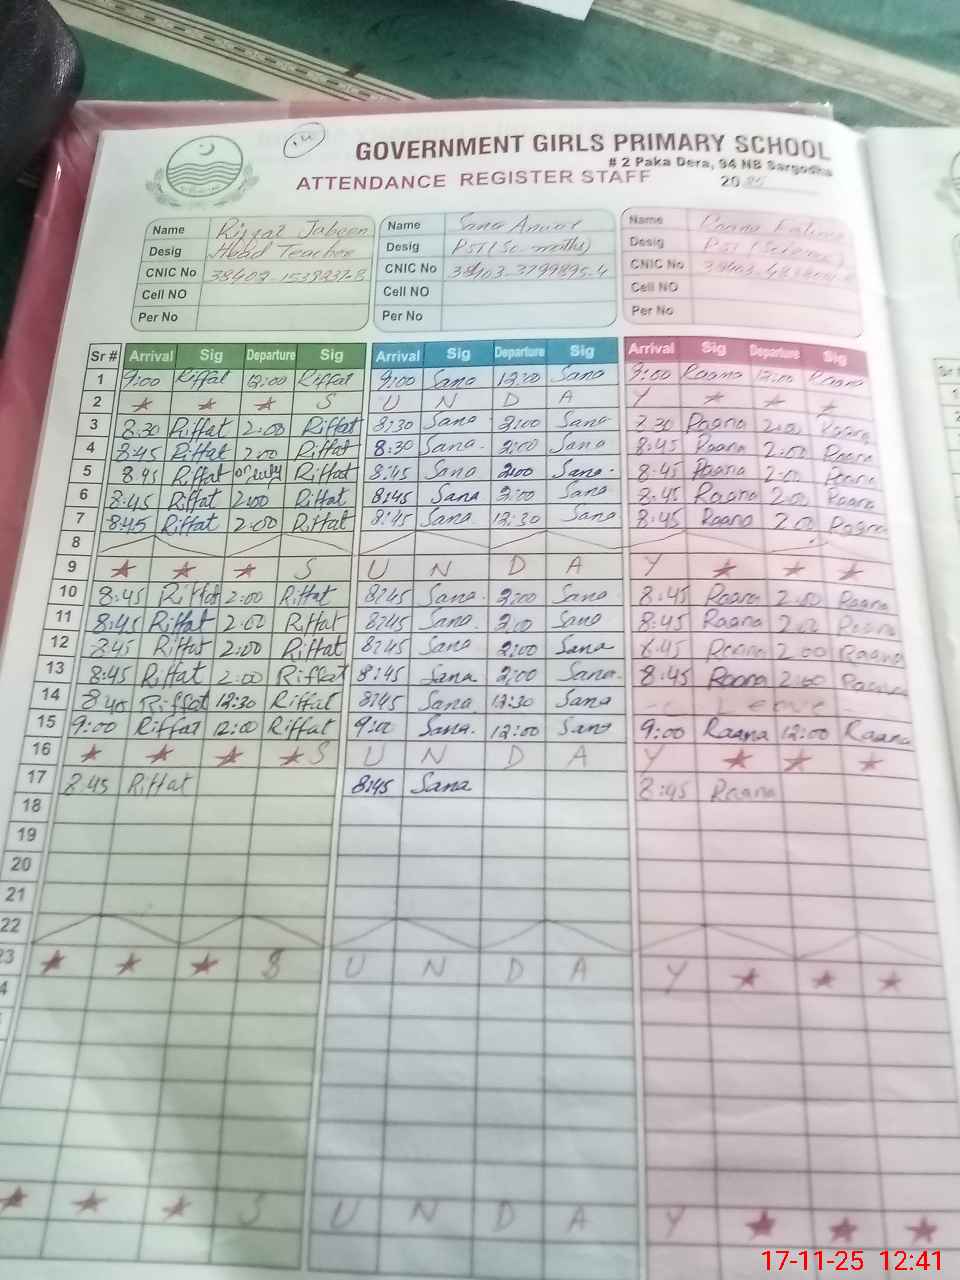 14
GOVERNMENT GIRLS PRIMARY SCHOOL
# 2 Paka Dera, 94 NB Sargodha
ATTENDANCE REGISTER STAFF 20
Name Riffat Jabeen Name Sana Name
Desig Head Teacher Desig PST (Sc. maths) Desig PST (Science)
CNIC No CNIC No 38403-3799895-4 CNIC No
Cell NO Cell NO Cell NO
Per No Per No Per No
Sr # Arrival Sig Departure Sig Arrival Sig Departure Sig Arrival Sig Departure Sig
1 9:00 Riffat 12:00 Riffat 9:00 Sana 12:00 Sana 9:00 Raana 12:00 Raana
2 S U N D A Y
3 8:30 Riffat 2:00 Riffat 8:30 Sana 2:00 Sana 8:30 Raana 2:00 Raana
4 8:45 Riffat 2:00 Riffat 8:30 Sana 2:00 Sana 8:45 Raana 2:00 Raana
5 8:45 Riffat Riffat 8:45 Sana 2:00 Sana 8:45 Raana 2:00 Raana
6 8:45 Riffat 2:00 Riffat 8:45 Sana 2:00 Sana 8:45 Raana 2:00 Raana
7 8:45 Riffat 2:00 Riffat 8:45 Sana 12:30 Sana 8:45 Raana 2:00 Raana
8
9 S U N D A Y
10 8:45 Riffat 2:00 Riffat 8:45 Sana 2:00 Sana 8:45 Raana 2:00 Raana
11 8:45 Riffat 2:00 Riffat 8:45 Sana 2:00 Sana 8:45 Raana 2:00 Raana
12 8:45 Riffat 2:00 Riffat 8:45 Sana 2:00 Sana 8:45 Raana 2:00 Raana
13 8:45 Riffat 2:00 Riffat 8:45 Sana 2:00 Sana 8:45 Raana 2:00 Raana
14 8:45 Riffat 12:30 Riffat 8:45 Sana 12:30 Sana Leave
15 9:00 Riffat 12:00 Riffat 9:00 Sana 12:00 Sana 9:00 Raana 12:00 Raana
16 S U N D A Y
17 8:45 Riffat 8:45 Sana 8:45 Raana
18
19
20
21
22
23 S U N D A Y
4
S U N D A Y
17-11-25 12:41